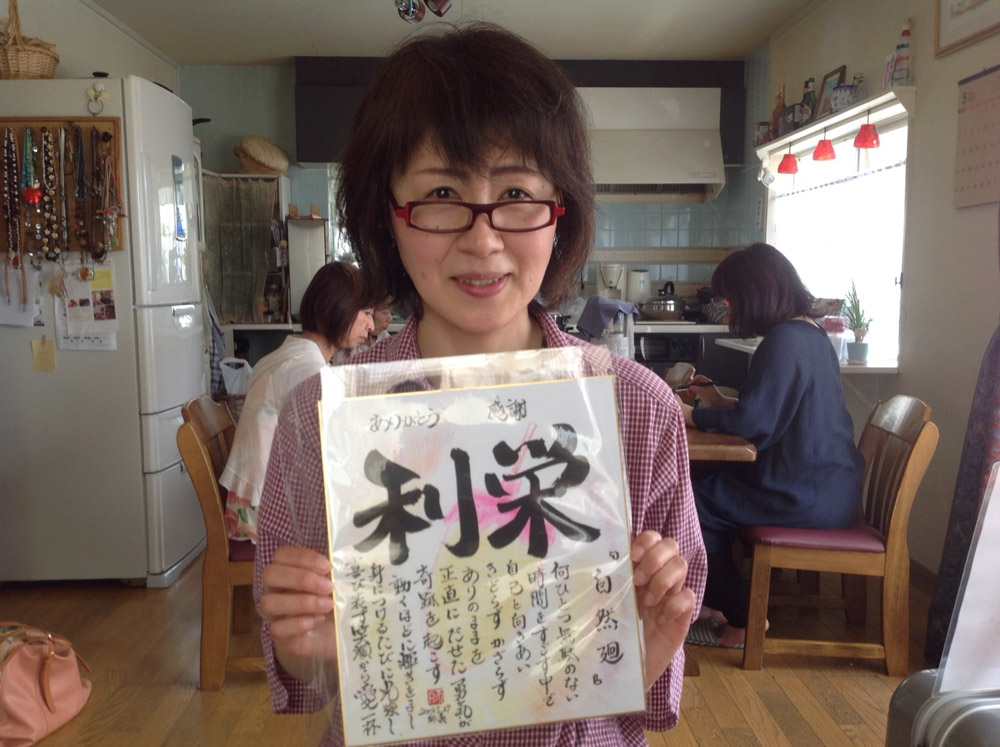 ありがとう 感謝
利栄
『自然廻』
何ひとつ無駄のない
時間をすごす中で
自己と向きあい
きどらず かざらず
ありのままを
正直にだせた勇気が
奇跡を起こす
動くほどに輝きをまし
身につけるたびに
笑顔から愛一杯